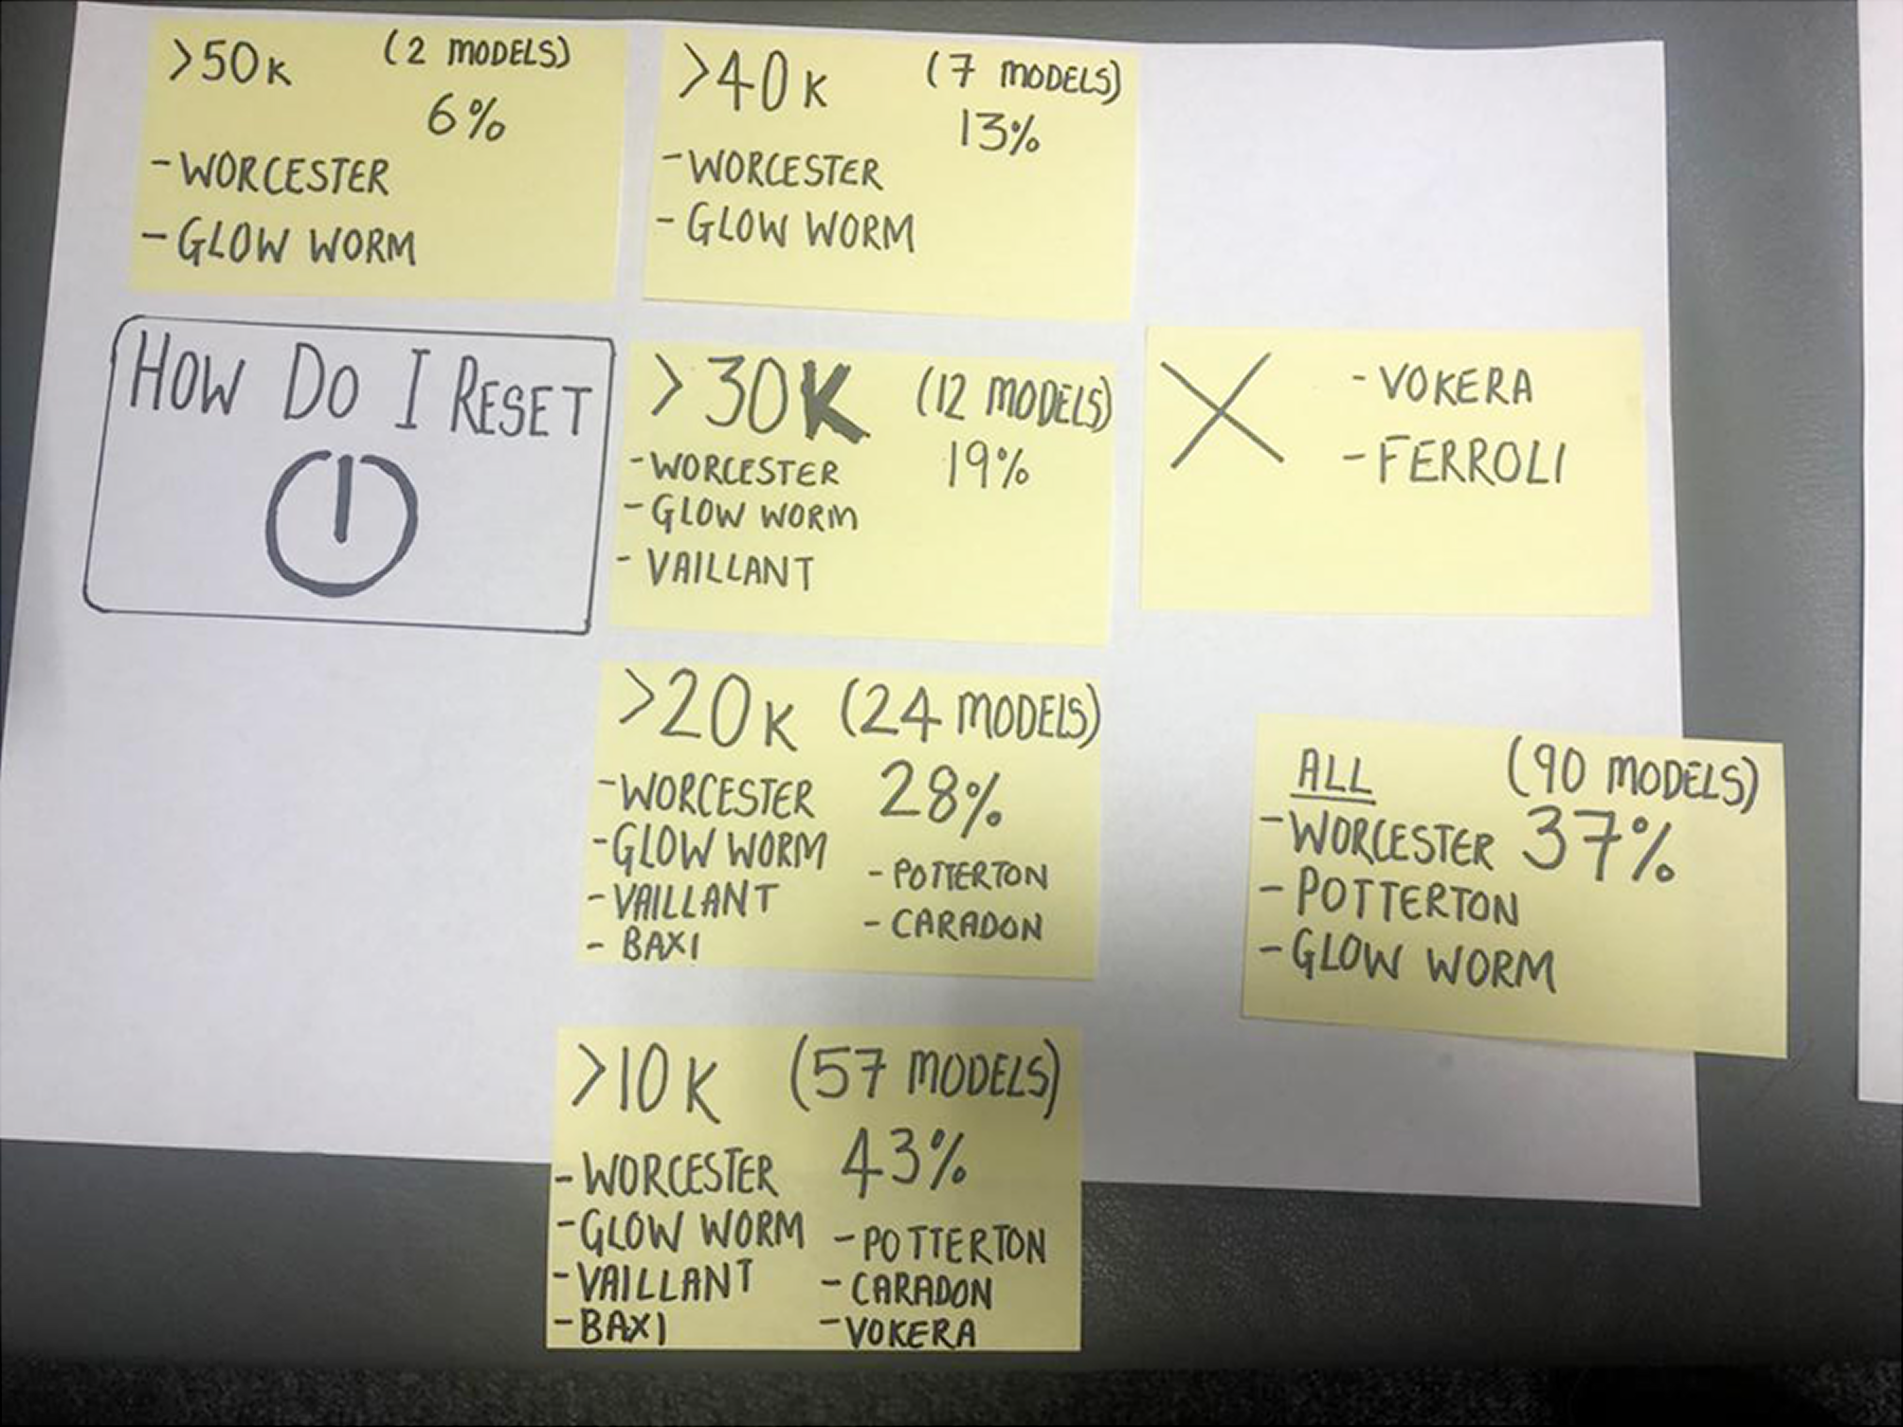 >50K (2 MODELS)
6%
- WORCESTER
- GLOW WORM
>40K (7 MODELS)
13%
- WORCESTER
- GLOW WORM
HOW DO I RESET
>30K (12 MODELS)
- WORCESTER 19%
- GLOW WORM
- VAILLANT
- VOKERA
- FERROLI
>20K (24 MODELS)
- WORCESTER 28%
- GLOW WORM
- POTTERTON
- VAILLANT
- CARADON
- BAXI
ALL (90 MODELS)
- WORCESTER 37%
- POTTERTON
- GLOW WORM
>10K (57 MODELS)
- WORCESTER 43%
- GLOW WORM - POTTERTON
- VAILLANT - CARADON
- BAXI - VOKERA